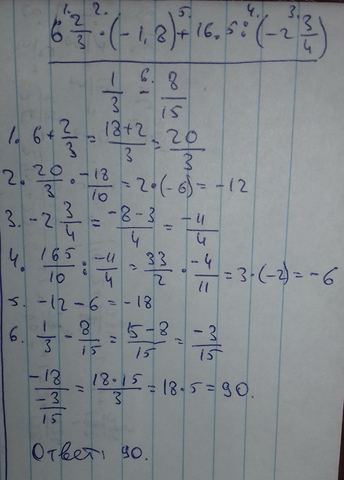 1. 2. 5. 4. 3.
6 2/3 · (-1,8) + 16.5 : (-2 3/4)
6.
1/3 - 8/15
1. 6 + 2/3 = (18+2)/3 = 20/3
2. 20/3 · -18/10 = 2 · (-6) = -12
3. -2 3/4 = (-8-3)/4 = -11/4
4. 165/10 : -11/4 = 33/2 · -4/11 = 3 · (-2) = -6
5. -12 - 6 = -18
6. 1/3 - 8/15 = (5-8)/15 = -3/15
-18/(-3/15) = (18·15)/3 = 18 · 5 = 90.
Ответ: 90.